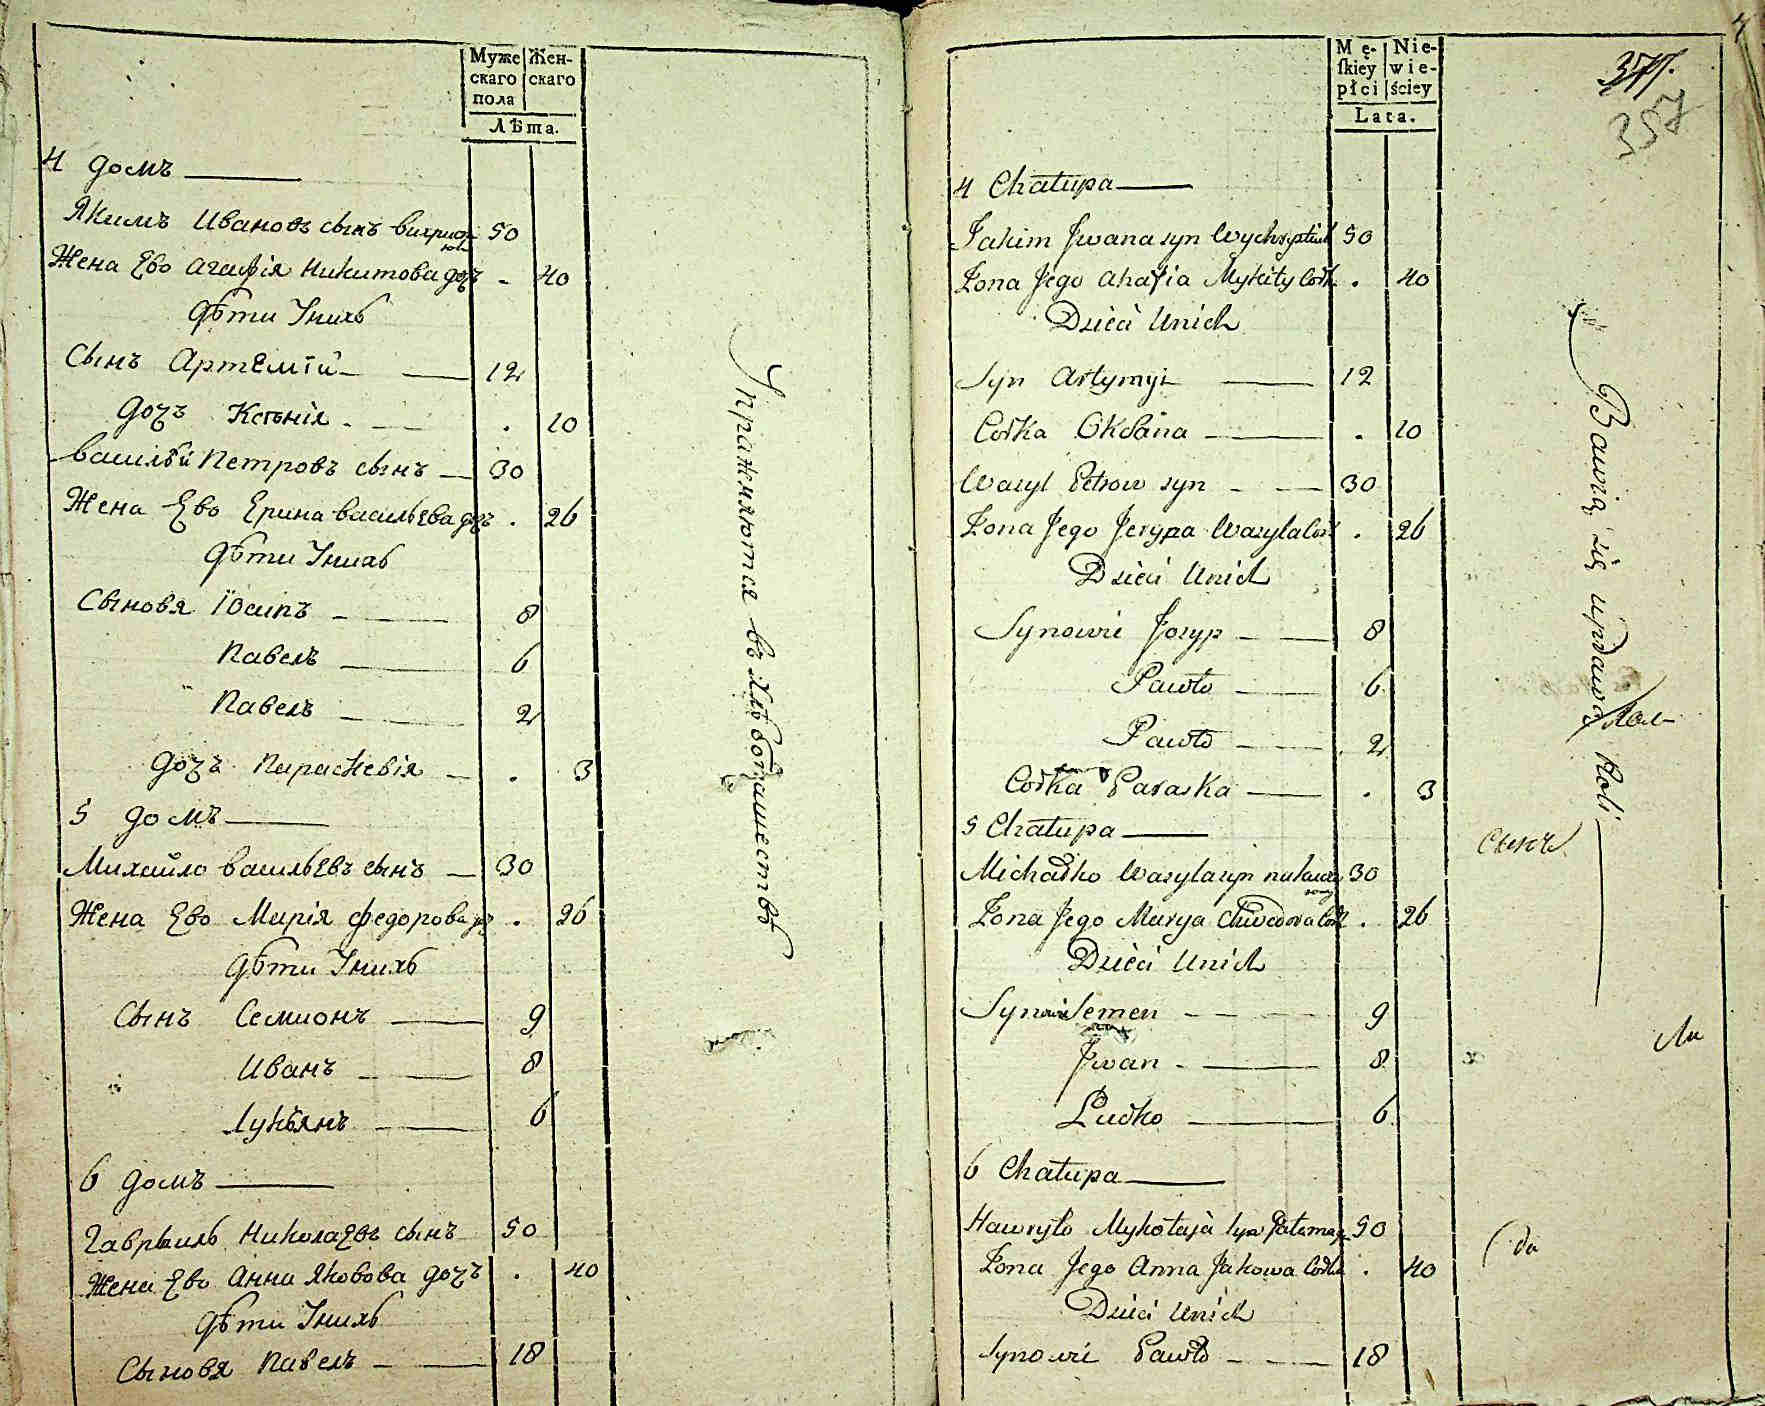 Муже Жен-
скаго скаго
пола
Лѣта.
4 домъ
Якимъ Ивановъ сынъ 50
Жена Ево Агафія Никитова доч . 40
дѣти Унихъ
Сынъ Артемїй 12
дочъ Ксенія . 10
василѣй Петровъ сынъ 30
Жена Ево Ерина васильева доч . 26
дѣти Унихъ
Сыновя Іосипъ 8
Павелъ 6
Павелъ 2
дочъ Параскевія . 3
5 домъ
Михайло васильевъ сынъ 30
Жена Ево Марія федорова доч . 26
дѣти Унихъ
Сынъ Семионъ 9
Иванъ 8
Лукъянъ 6
6 домъ
Гаврыилъ Николаевъ сынъ 50
Жена Ево Анна Яковова дочъ . 40
дѣти Унихъ
Сыновя Павелъ 18
Упражняются въ хлѣбопашествѣ
Mę- Nie-
skiey wie-
płci ściey
Lata.
357
4 Chałupa
Jakim Jwana syn 50
Żona Jego Ahafia Mykity Corka . 40
Dzieci Unich
Syn Artymyi 12
Corka Oksana . 10
Wasyl Petrow syn 30
Żona Jego Jeryna Wasyla Cor . 26
Dzieci Unich
Synowie Josyp 8
Pawło 6
Pawło 2
Corka Paraska . 3
5 Chałupa
Michałko Wasyla syn 30
Żona Jego Marya Chwedora Cor . 26
Dzieci Unich
Synowie Semen 9
Jwan 8
Łućko 6
6 Chałupa
Hawryło Mykołaja syn 50
Żona Jego Anna Jakowa Corka . 40
Dzieci Unich
Synowie Pawło 18
Bawią się uprawą Roli
сынъ
да